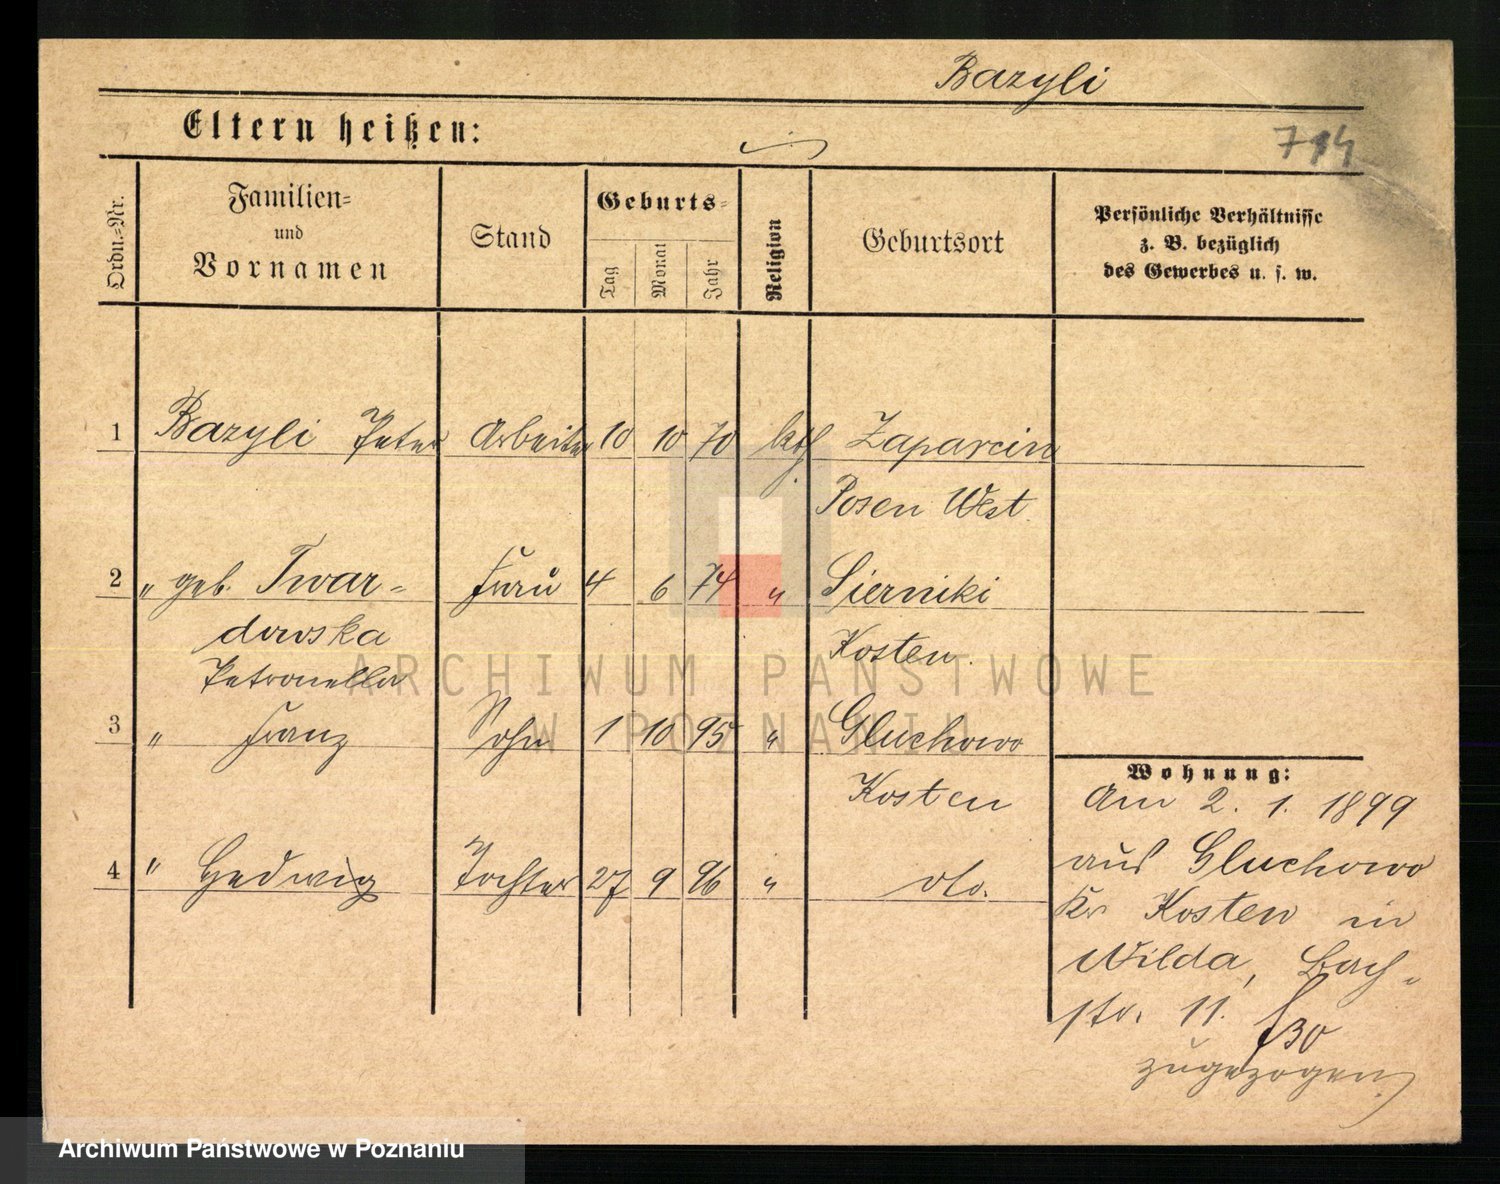 Bazyli
Eltern heißen:
714
Ordn.-Nr.
Familien-
und
Vornamen
Stand
Geburts-
Tag
Monat
Jahr
Religion
Geburtsort
Persönliche Verhältnisse
z. B. bezüglich
des Gewerbes u. s. w.
1 Bazyli Peter Arbeiter 10 10 70 kth Zaparcin
Posen West
2 " geb. Twar- Frau 4 6 74 " Sierniki
dowska Kosten.
Petronella
3 " Franz Sohn 1 10 95 " Gluchowo
Kosten
4 " Hedwig Tochter 27 9 96 " do.
Wohnung:
Am 2. 1. 1899
aus Gluchowo
Kr Kosten in
Wilda, Bach-
str. 11.
f 30
zugezogen
ARCHIWUM PAŃSTWOWE
W POZNANIU
Archiwum Państwowe w Poznaniu